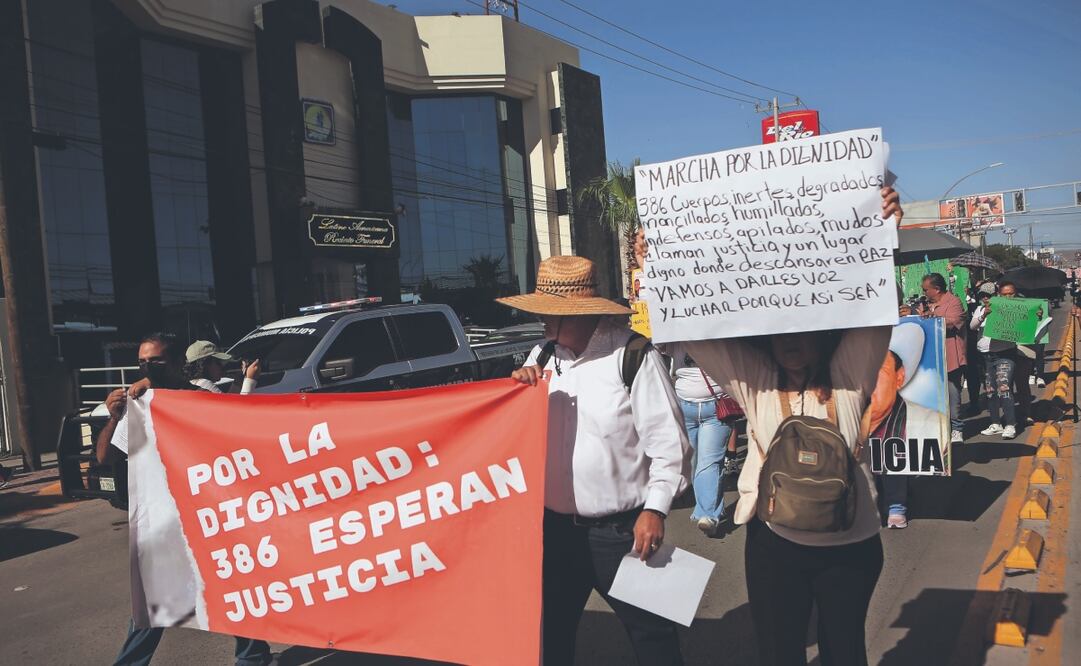 POR LA
DIGNIDAD:
386 ESPERAN
JUSTICIA
"MARCHA POR LA DIGNIDAD"
386 Cuerpos, inertes, degradados,
mancillados, humillados,
indefensos, apilados, mudos
claman justicia y un lugar
digno donde descansar en PAZ
VAMOS A DARLES VOZ
Y LUCHAR PORQUE ASÍ SEA"
Latino Americana
Recinto Funeral
Del
Rio
POLICIA MUNICIPAL
ICIA